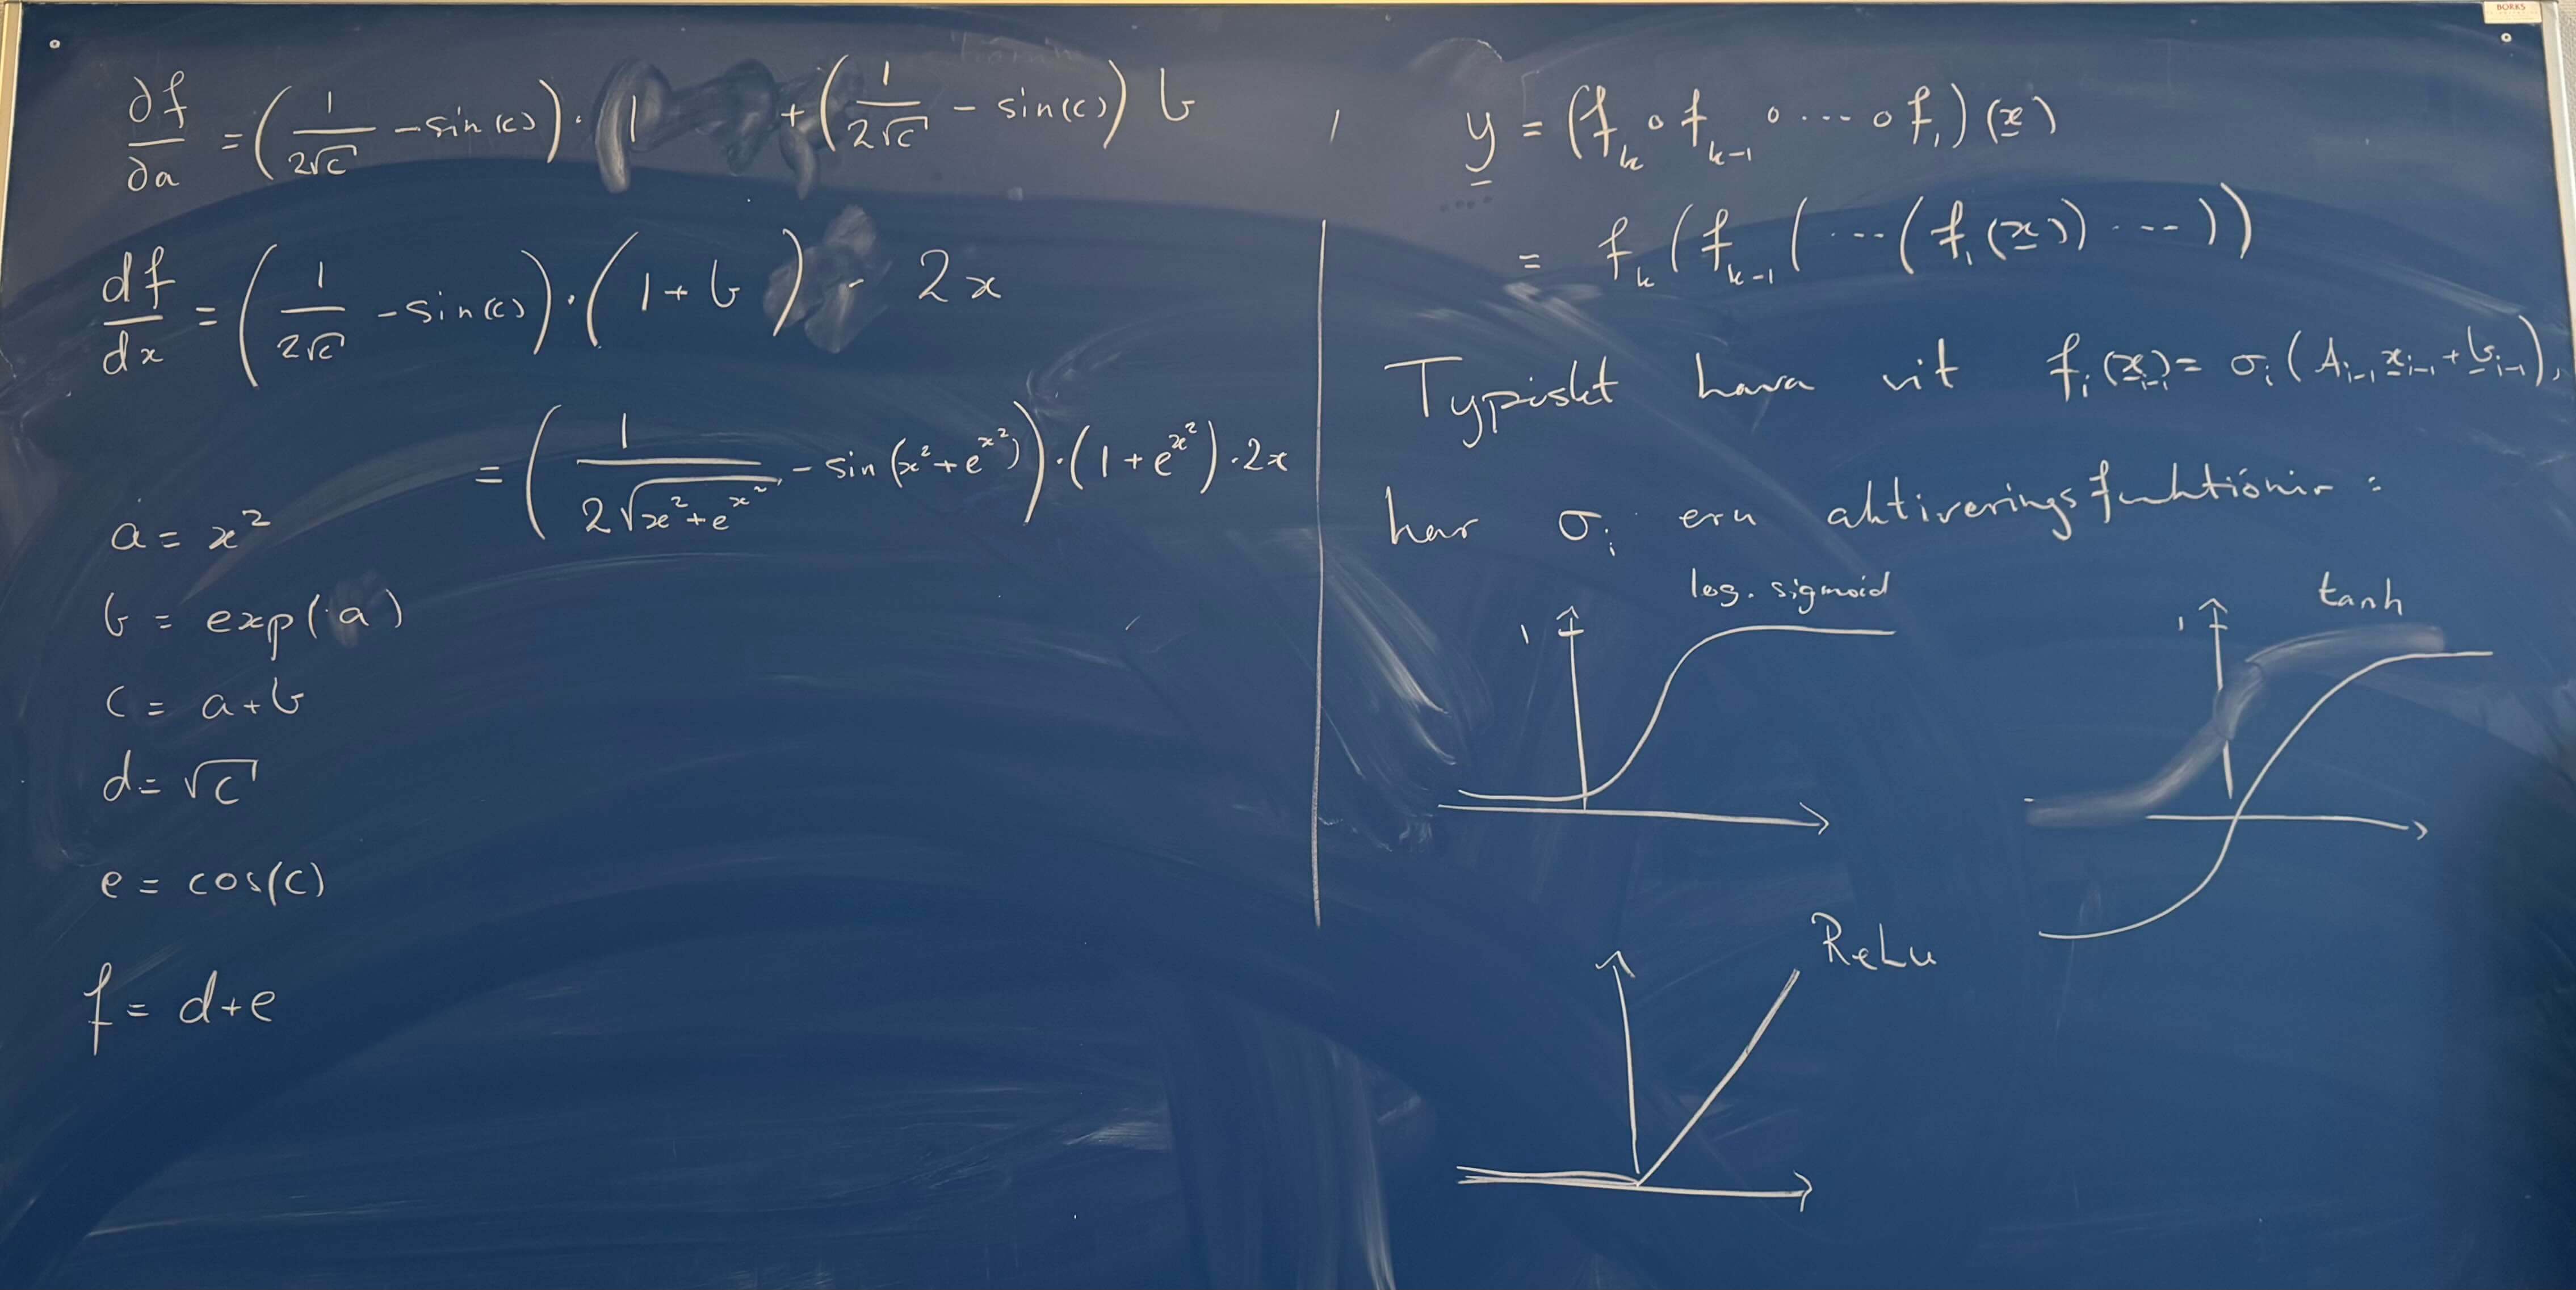 ∂f/∂a = (1/(2√c) − sin(c)) · 1 + (1/(2√c) − sin(c)) b
df/dx = (1/(2√c) − sin(c)) · (1 + b) · 2x
= (1/(2√(x²+e^(x²))) − sin(x²+e^(x²))) · (1+e^(x²)) · 2x
a = x²
b = exp(a)
c = a+b
d = √c
e = cos(c)
f = d+e
y = (f_k ∘ f_{k-1} ∘ ... ∘ f_1)(x)
= f_k(f_{k-1}(...(f_1(x))...))
Typiskt hava vit f_i(x_{i-1}) = σ_i(A_{i-1} x_{i-1} + b_{i-1}),
har σ_i eru aktiveringsfunktiónir:
log. sigmoid
1
tanh
1
ReLu
BORKS